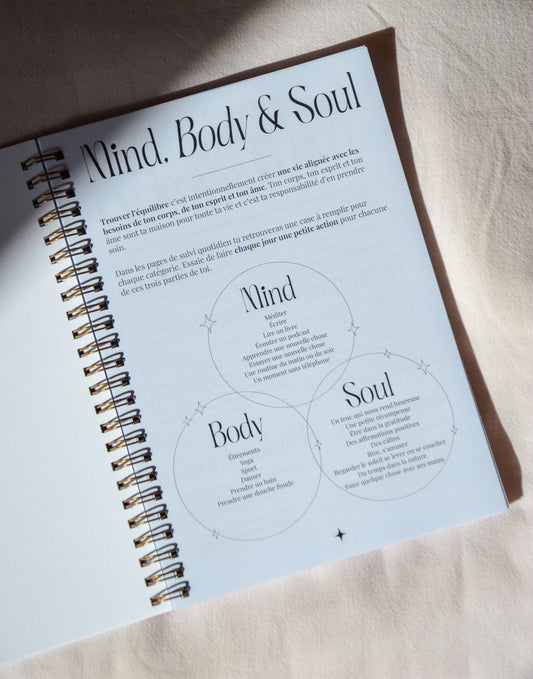 Mind, Body & Soul
Trouver l'équilibre c'est intentionnellement créer une vie alignée avec les
besoins de ton corps, de ton esprit et ton âme. Ton corps, ton esprit et ton
âme sont ta maison pour toute ta vie et c'est ta responsabilité d'en prendre
soin.
Dans les pages de suivi quotidien tu retrouveras une case à remplir pour
chaque catégorie. Essaie de faire chaque jour une petite action pour chacune
de ces trois parties de toi.
Mind
Méditer
Écrire
Lire un livre
Écouter un podcast
Apprendre une nouvelle chose
Essayer une nouvelle chose
Une routine du matin ou du soir
Un moment sans téléphone
Body
Étirements
Yoga
Sport
Danser
Prendre un bain
Prendre une douche froide
Soul
Un truc qui nous rend heureuse
Une petite récompense
Être dans la gratitude
Des affirmations positives
Des câlins
Rire, s'amuser
Regarder le soleil se lever ou se coucher
Du temps dans la nature
Faire quelque chose avec ses mains